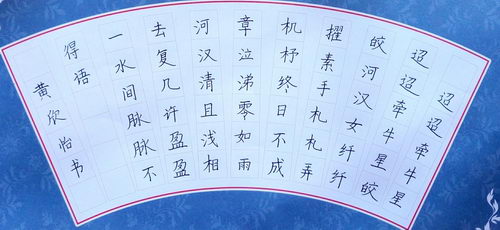 迢迢牵牛星
迢迢牵牛星皎
皎河汉女纤纤
擢素手札札弄
机杼终日不成
章泣涕零如雨
河汉清且浅相
去复几许盈盈
一水间脉脉不
得语
黄欣怡书